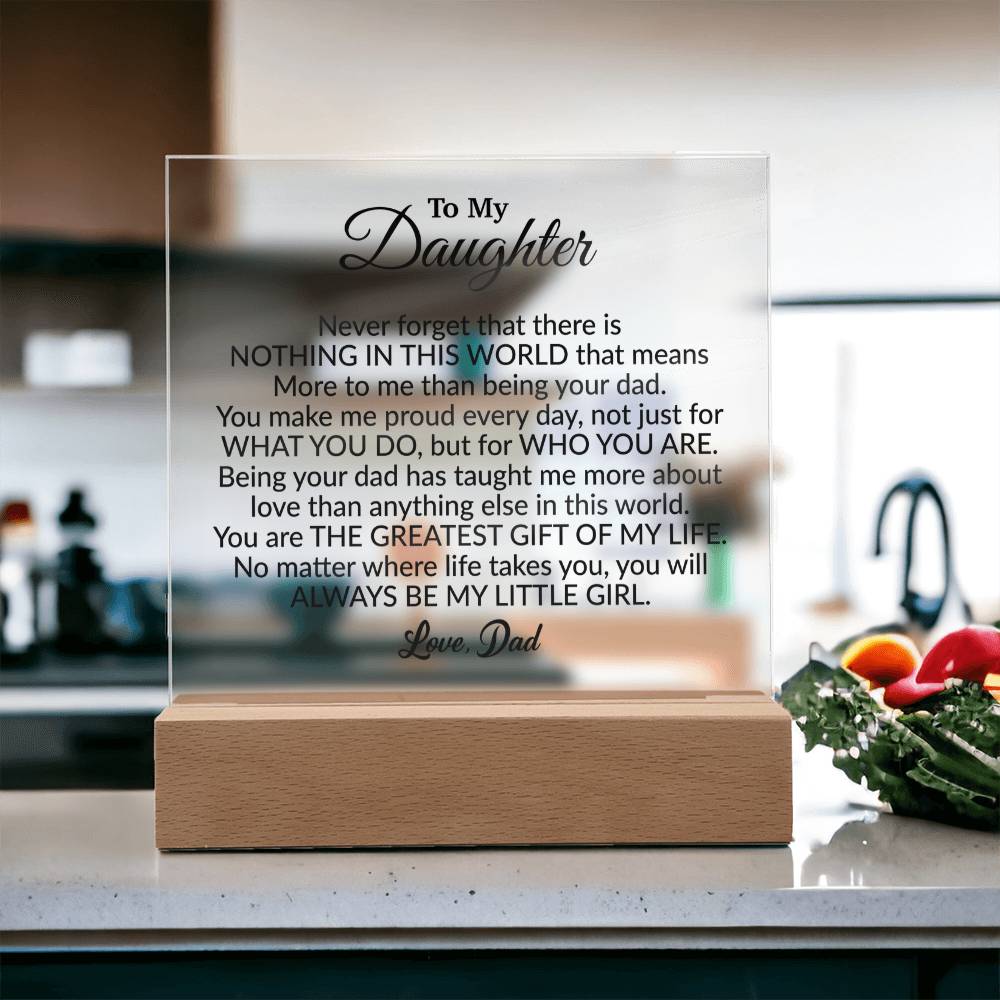 To My
Daughter
Never forget that there is
NOTHING IN THIS WORLD that means
More to me than being your dad.
You make me proud every day, not just for
WHAT YOU DO, but for WHO YOU ARE.
Being your dad has taught me more about
love than anything else in this world.
You are THE GREATEST GIFT OF MY LIFE.
No matter where life takes you, you will
ALWAYS BE MY LITTLE GIRL.
Love, Dad